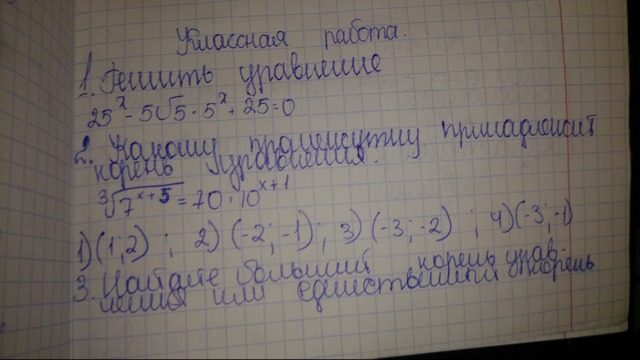 Классная работа.
1. Решить уравнение
25^x - 5√5 · 5^x + 25 = 0
2. Какому промежутку принадлежит
корень уравнения.
∛(7^(x+5)) = 70 · 10^(x+1)
1) (1; 2) ; 2) (-2; -1) ; 3) (-3; -2) ; 4) (-3; -1)
3. Найдите больший корень урав-
нения или единственный корень